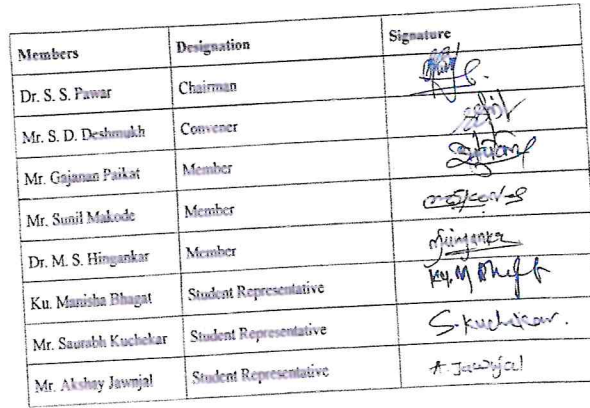 Members Designation Signature
Dr. S. S. Pawar Chairman
Mr. S. D. Deshmukh Convener
Mr. Gajanan Paikat Member
Mr. Sunil Makode Member
Dr. M. S. Hingankar Member
Ku. Manisha Bhagat Student Representative Ku. M Bhagat
Mr. Saurabh Kuchekar Student Representative S. Kuchekar.
Mr. Akshay Jawnjal Student Representative A. Jawnjal